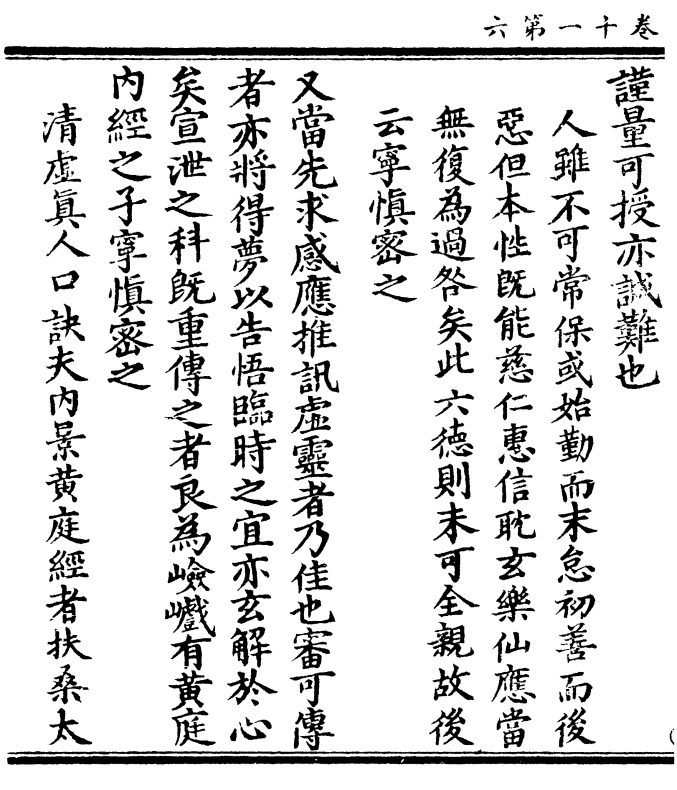 卷十一第六
謹量可授亦誠難也
人雖不可常保或始勤而末怠初善而後
惡但本性既能慈仁惠信耽玄樂仙應當
無復為過咎矣此六德則未可全親故後
云寧慎密之
又當先求感應推訊虛靈者乃佳也審可傳
者亦將得夢以告悟臨時之宜亦玄解於心
矣宣泄之科既重傳之者良為嶮巇有黃庭
內經之子寧慎密之
清虛真人口訣夫內景黃庭經者扶桑太